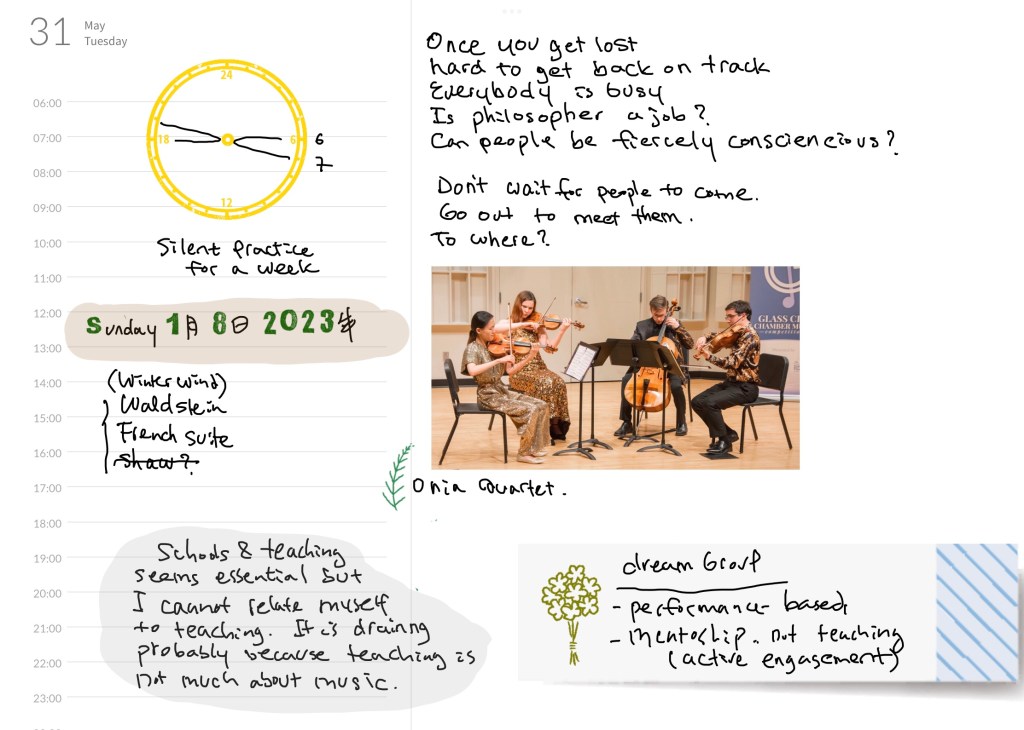 31
May
Tuesday
06:00
07:00
08:00
09:00
10:00
11:00
12:00
13:00
14:00
15:00
16:00
17:00
18:00
19:00
20:00
21:00
22:00
23:00
24
18
6
12
6
7
Silent Practice
for a week
Sunday 1月 8日 2023年
(Winter Wind)
Waldstein
French Suite
Shaw?
Schools & teaching
seems essential but
I cannot relate myself
to teaching. It is draining
probably because teaching is
not much about music.
Once you get lost
hard to get back on track
Everybody is busy
Is philosopher a job?
Can people be fiercely consciencious?
Don't wait for people to come.
Go out to meet them.
To where?
GLASS CI
CHAMBER MU
competition
Onia Quartet.
dream Group
- performance-based,
- mentorship. not teaching
(active engagement)